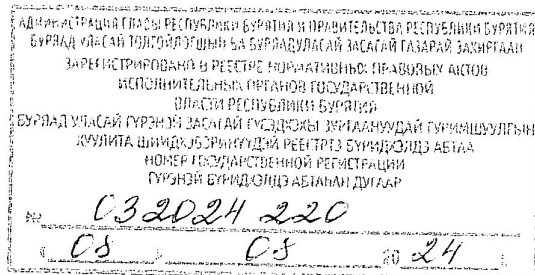 АДМИНИСТРАЦИЯ ГЛАВЫ РЕСПУБЛИКИ БУРЯТИЯ И ПРАВИТЕЛЬСТВА РЕСПУБЛИКИ БУРЯТИЯ
БУРЯАД УЛАСАЙ ТОЛГОЙЛОГШЫН БА БУРЯАД УЛАСАЙ ЗАСАГАЙ ГАЗАРАЙ ЗАХИРГААН
ЗАРЕГИСТРИРОВАНО В РЕЕСТРЕ НОРМАТИВНЫХ ПРАВОВЫХ АКТОВ
ИСПОЛНИТЕЛЬНЫХ ОРГАНОВ ГОСУДАРСТВЕННОЙ
ВЛАСТИ РЕСПУБЛИКИ БУРЯТИЯ
БУРЯАД УЛАСАЙ ГҮРЭНЭЙ ЗАСАГАЙ
РЕЕСТРТЭ БҮРИДХЭЛДЭ АБТАА
НОМЕР ГОСУДАРСТВЕННОЙ РЕГИСТРАЦИИ
ГҮРЭНЭЙ БҮРИДХЭЛДЭ АБТАҺАН ДУГААР
№ 032024 220
« 08 » 08 20 24 г.